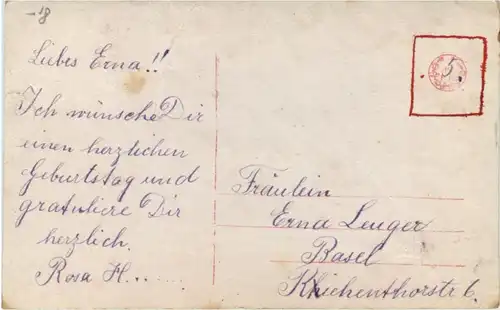 –18
Liebes Erna!!
Ich wünsche Dir
einen herzlichen
Geburtstag und
gratuliere Dir
herzlich.
Rosa H......
5.
Fräulein
Erna Leuger
Basel
6.